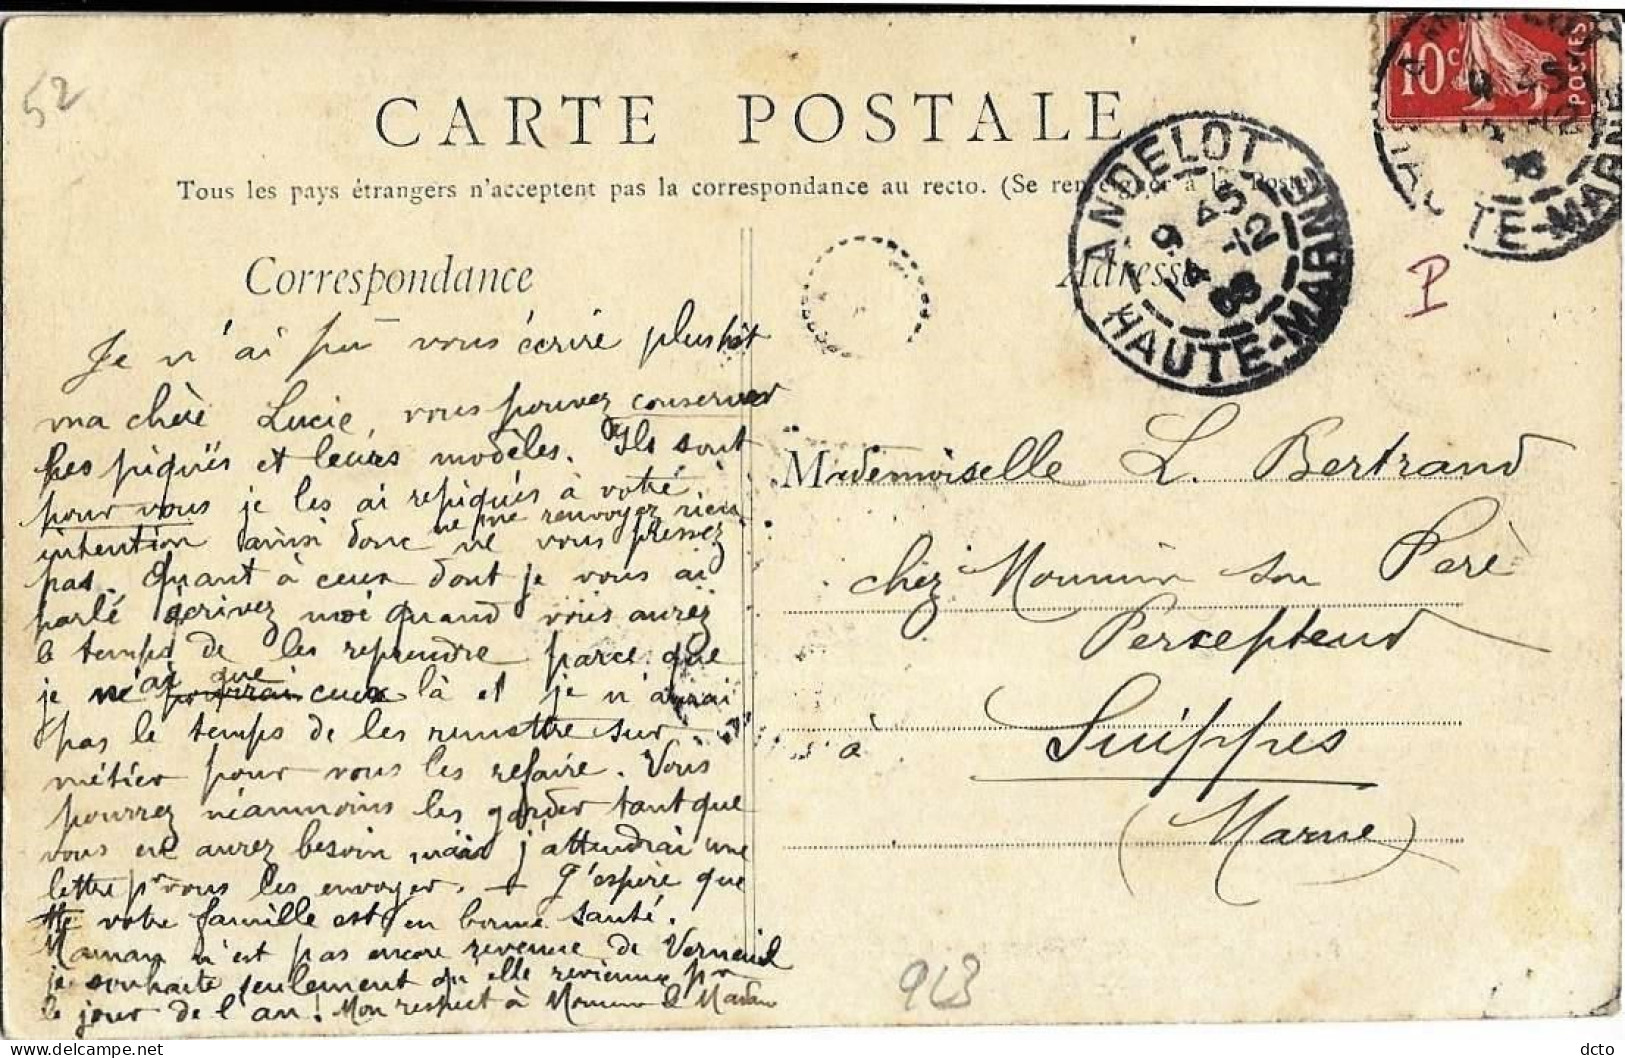 52
CARTE POSTALE
Tous les pays étrangers n'acceptent pas la correspondance au recto. (Se renseigner à la Poste)
10c
POSTES
ANDELOT
9 45
14 -12
08
HAUTE-MARNE
HAUTE-MARNE
P
Correspondance
Adresse
Je n'ai pu vous écrire plustôt
ma chère Lucie, vous pouvez conserver
les piqués et leurs modèles. Ils sont
pour vous je les ai repiqués à votre
intention ainsi donc ne me renvoyez rien ne vous pressez
pas. Quant à ceux dont je vous ai
parlé écrivez moi quand vous aurez
le temps de les reprendre parce que
je n'ai que ceux là et je n'aurai
pas le temps de les remettre sur
métier pour vous les refaire. Vous
pourrez néanmoins les garder tant que
vous en aurez besoin mais j'attendrai une
lettre pr vous les envoyer. — J'espère que
tte votre famille est en bonne santé.
Maman n'est pas encore revenue de Verneuil
je souhaite seulement qu'elle revienne pr
le jour de l'an! Mon respect à Monsieur & Madame
Mademoiselle L. Bertrand
chez Monsieur son Père
Percepteur
à Suippes
(Marne)
923
delcampe.net
dcto